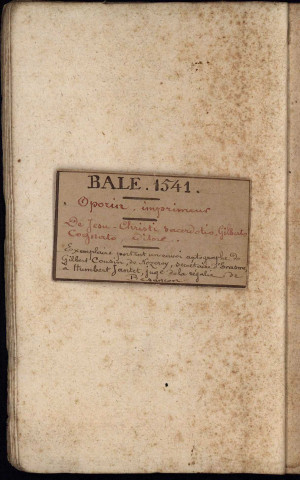 BALE. 1541.
Oporin - imprimeur
De Jesu - Christi sacerdotio, Gilberto
Cognato
Exemplaire portant un envoi autographe de
Gilbert Cousin, de Nozeroy, secrétaire d'Erasme
à Humbert Jantet, juge de la régalie de
Besançon